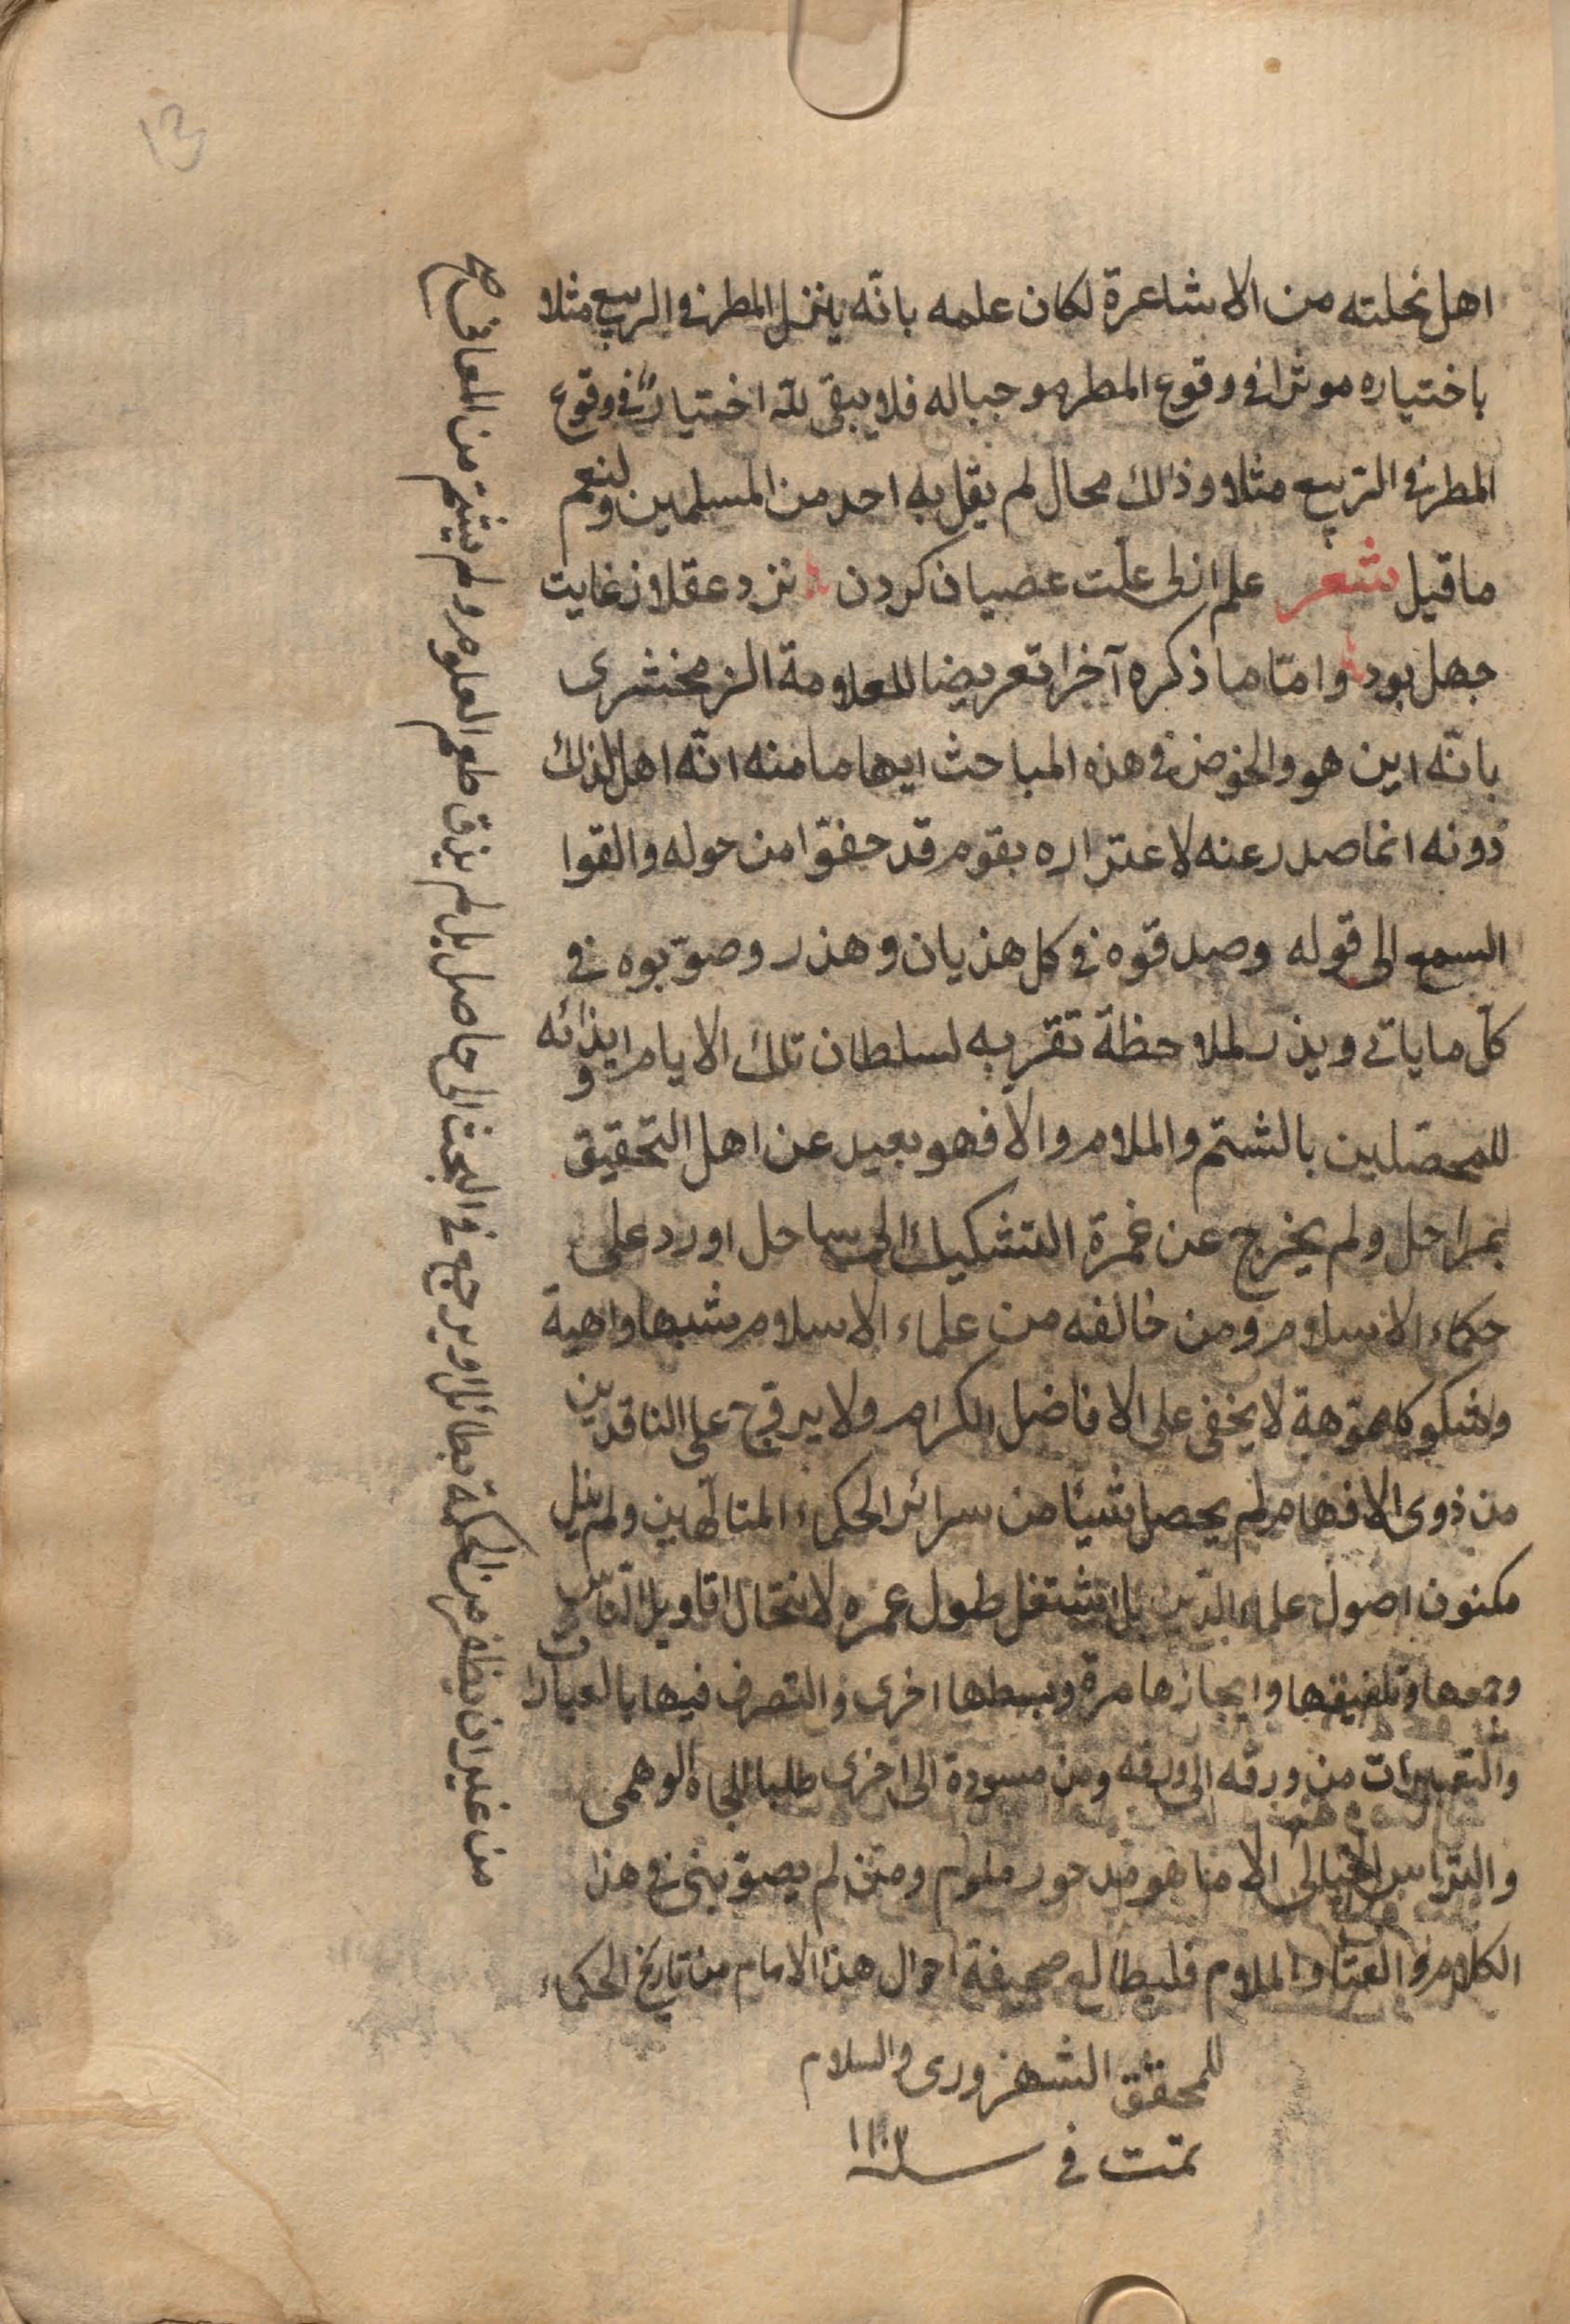 13
اهل نحلته من الاشاعرة لكان علمه بانّه ينزل المطر فى الربيع مثلا
باختياره موثرا فى وقوع المطر موجبا له فلا يبقى للّه اختيار فى وقوع
المطر فى الربيع مثلا وذالك محال لم يقل به احد من المسلمين ولنعم
ما قيل شعر علم ازلى علّت عصيان كردن نزد عقلا ز غايت
جهل بود وامّا ما ذكره آخرا تعريضا للعلامة الزمخشرى
بانّه اين هو والخوض فى هذه المباحث ايهاما منه انّه اهل لذلك
دونه انما صدر عنه لاغتراره بقوم قد حفّوا من حوله والقوا
السمع الى قوله وصدقوه فى كل هذيان وهذر وصوّبوه فى
كلّ ما ياتى ويذر لملاحظة تقربه لسلطان تلك الايام وايذائه
للمحصّلين بالشتم والملام والا فهو بعيد عن اهل التحقيق
بمراحل ولم يخرج عن غمرة التشكيك الى ساحل اورد على
حكماء الاسلام ومن خالفه من علماء الاسلام شبها واهية
وشكوكا مموّهة لا يخفى على الافاضل الكرام ولا يروّج على الناقدين
من ذوى الافهام لم يحصل شيئا من سرائر الحكماء المتالّهين ولم ينل
مكنون اصول علماء الدّين بل اشتغل طول عمره لانتحال اقاويل النّاس
وجمعها وتلفيقها وايجازها مرة وبسطها اخرى والتصرف فيها بالعبارات
والتعبيرات من ورقه الى ورقه ومن مسودة الى اخرى طلبا للجاه الوهمى
والتراس الخيالى الا مما هو مدحور ملوم ومن لم يصوّبنى فى هذا
الكلام والعتاب والملام فليطالع صحيفة احوال هذا الامام من تاريخ الحكماء
للمحقق الشهرزورى والسلام
تمت فى سنة ١١٠٣
من غير ان يظفر من الحكمة بطائل او يرجع فى البحث الى حاصل بل لم يذق طعم العلوم ولم يشم من المعانى صح